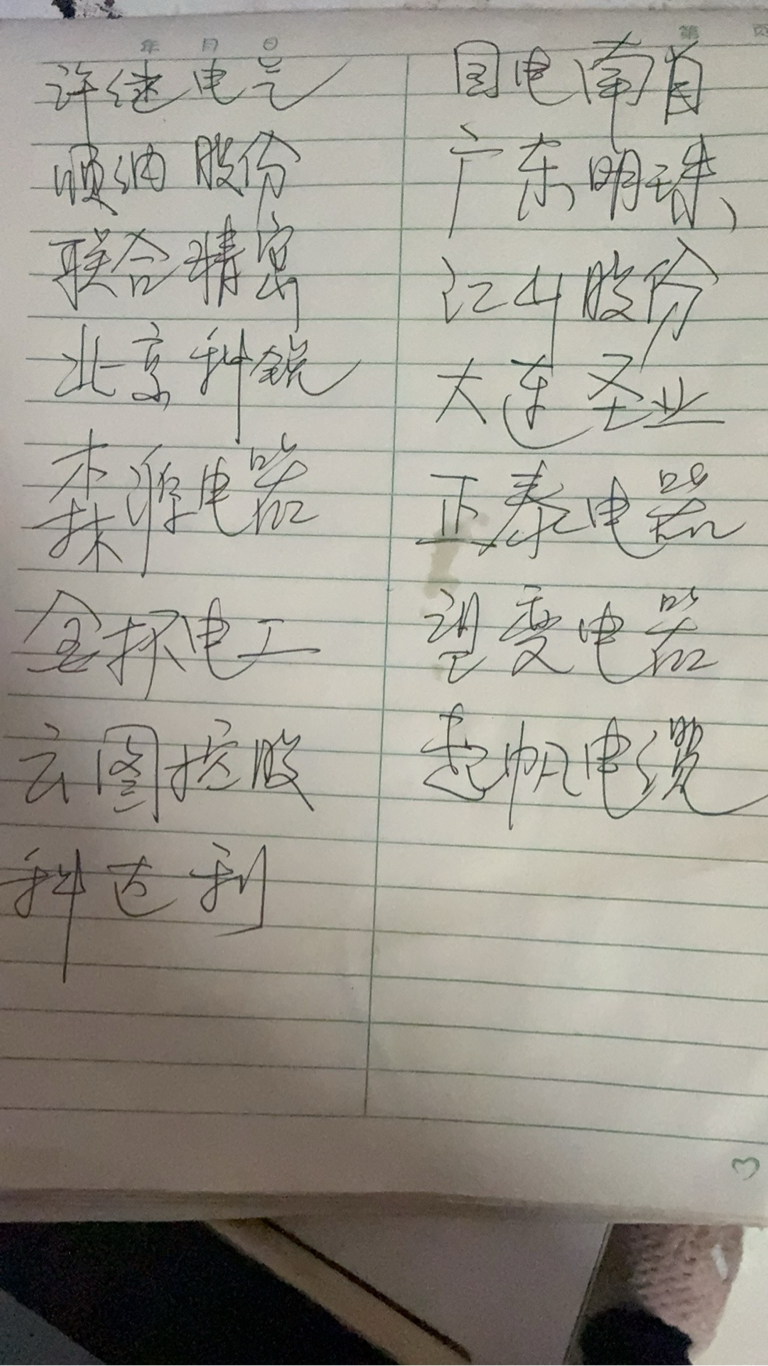 年 月 日
第 页
许继电气
顺钠股份
联合精密
北京科锐
森源电器
金杯电工
云图控股
科达利
国电南自
广东明珠、
江山股份
大连圣业
正泰电器
望变电器
起帆电缆